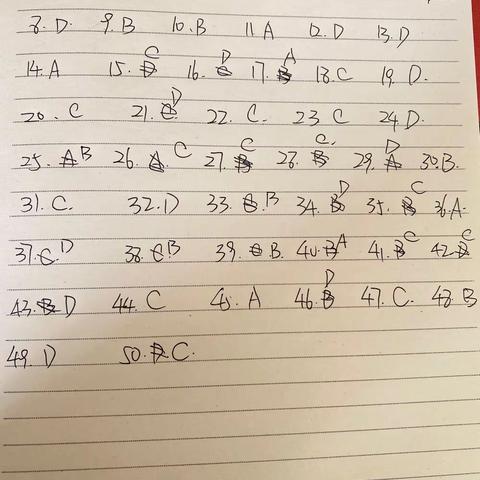 8. D. 9. B 10. B 11 A 12. D 13. D
14. A 15. C 16. D 17. A 18. C 19. D.
20. C 21. D 22. C. 23 C 24 D.
25. B 26. C 27. C 28. C. 29. D 30. B.
31. C. 32. D 33. B 34. D 35. C 36. A.
37. D 38. B 39. B. 40. A 41. C 42. C
43. D 44. C 45. A 46. D 47. C. 48. B
49. D 50. C.